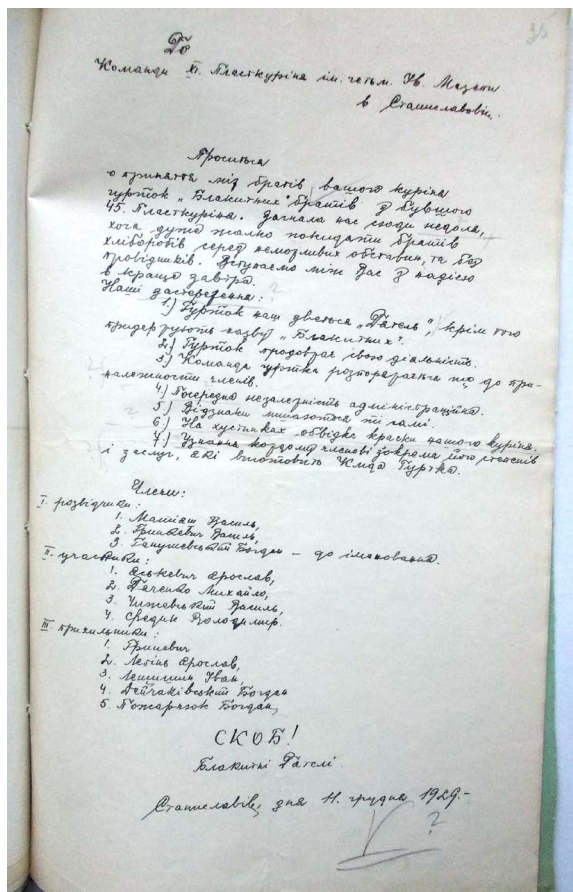 35
До
Команди XI. Пласткуріня ім. гетьм. Ів. Мазепи
в Станиславові.
Проситься
о приняття між братів вашого куріня
гурток „Блакитних" братів з бувшого
45. Пласткуріня. Загнала нас сюди недоля,
хоча дуже жалко покидати братів
хліборобів серед неможливих обставин, та без
провідників. Вступаємо між Вас з надією
в краще завтра.
Наші застереження:
1.) Гурток наш зветься „Дятель", крім того
придержують назву „Блакитних".
2.) Гурток продовжає свою діяльність.
3.) Команда гуртка розпоряжається що до при-
належности членів.
4.) Посередна незалежність адміністраційна.
5.) Відзнаки лишаються ті самі.
6.) На хустинках обвідка краски нашого куріня.
7.) Узнання кождому членові зокрема його степенів
і заслуг, які виготовить Кмда Гуртка.
Члени:
I. розвідчики:
1. Василь,
2. Гринкевич Василь,
3. Ганушевський Богдан – до іменовання.
II. участники:
1. Яськевич Ярослав,
2. Дяченко Михайло,
3. Чижевський Василь,
4. Середик Володимир.
III. прихильники:
1. Гриневич
2. Ярослав,
3. Лешишин Іван,
4. Дейчаківський Богдан
5. Пожарнюк Богдан,
СКОБ!
Блакитні Дятелі.
Станиславів, дня 11. грудня 1929.-
?